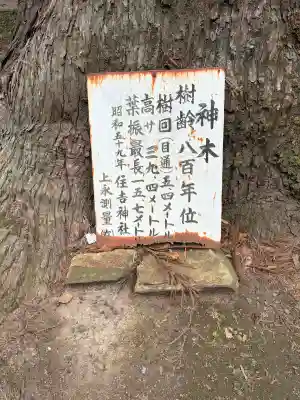 神木
樹齢 八百年位
樹回(目通)五.四メートル
高サ 三九.四メートル
葉振最長一五.七メートル
昭和五十九年 住吉神社
上永測量